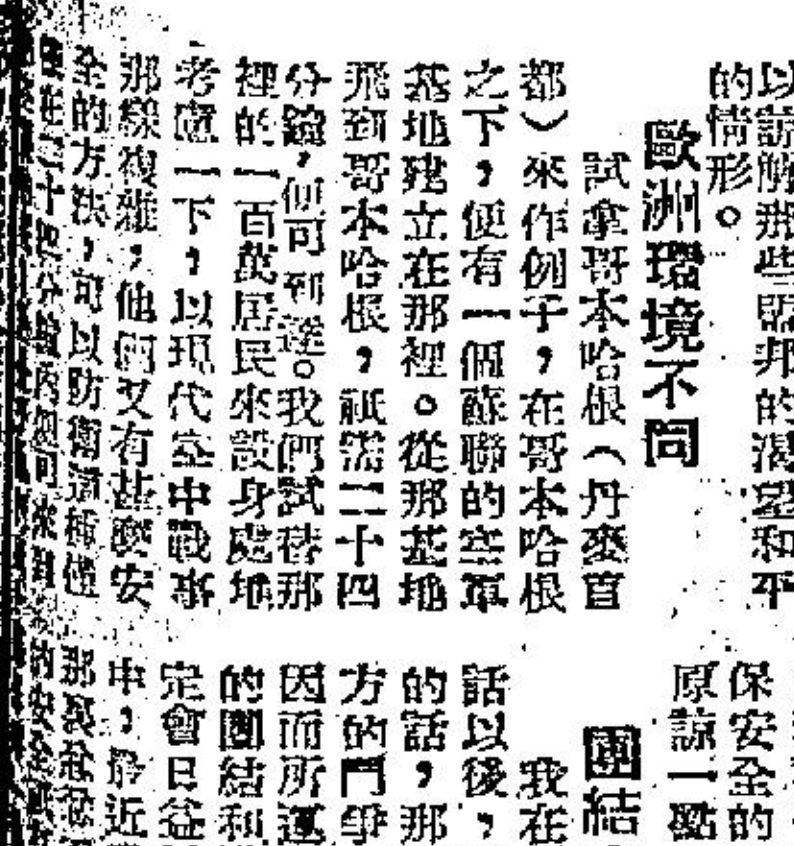 以諒解那些盟邦的渴望和平
的情形。
歐洲環境不同
試拿哥本哈根(丹麥首
都)來作例子,在哥本哈根
之下,便有一個蘇聯的空軍
基地建立在那裡。從那基地
飛到哥本哈根,祇需二十四
分鐘,便可到達。我們試替那
裡的一百萬居民來設身處地
考慮一下,以現代空中戰事
那樣複雜,他們又有甚麼安
全的方法,可以防衛這種
在二十四分鐘內便可來到
保安全的
原諒一點
團結
我在
話以後,
的話,那
方的鬥爭
因而所運
定會日益
的團結和
中,最近
那裏
的安全